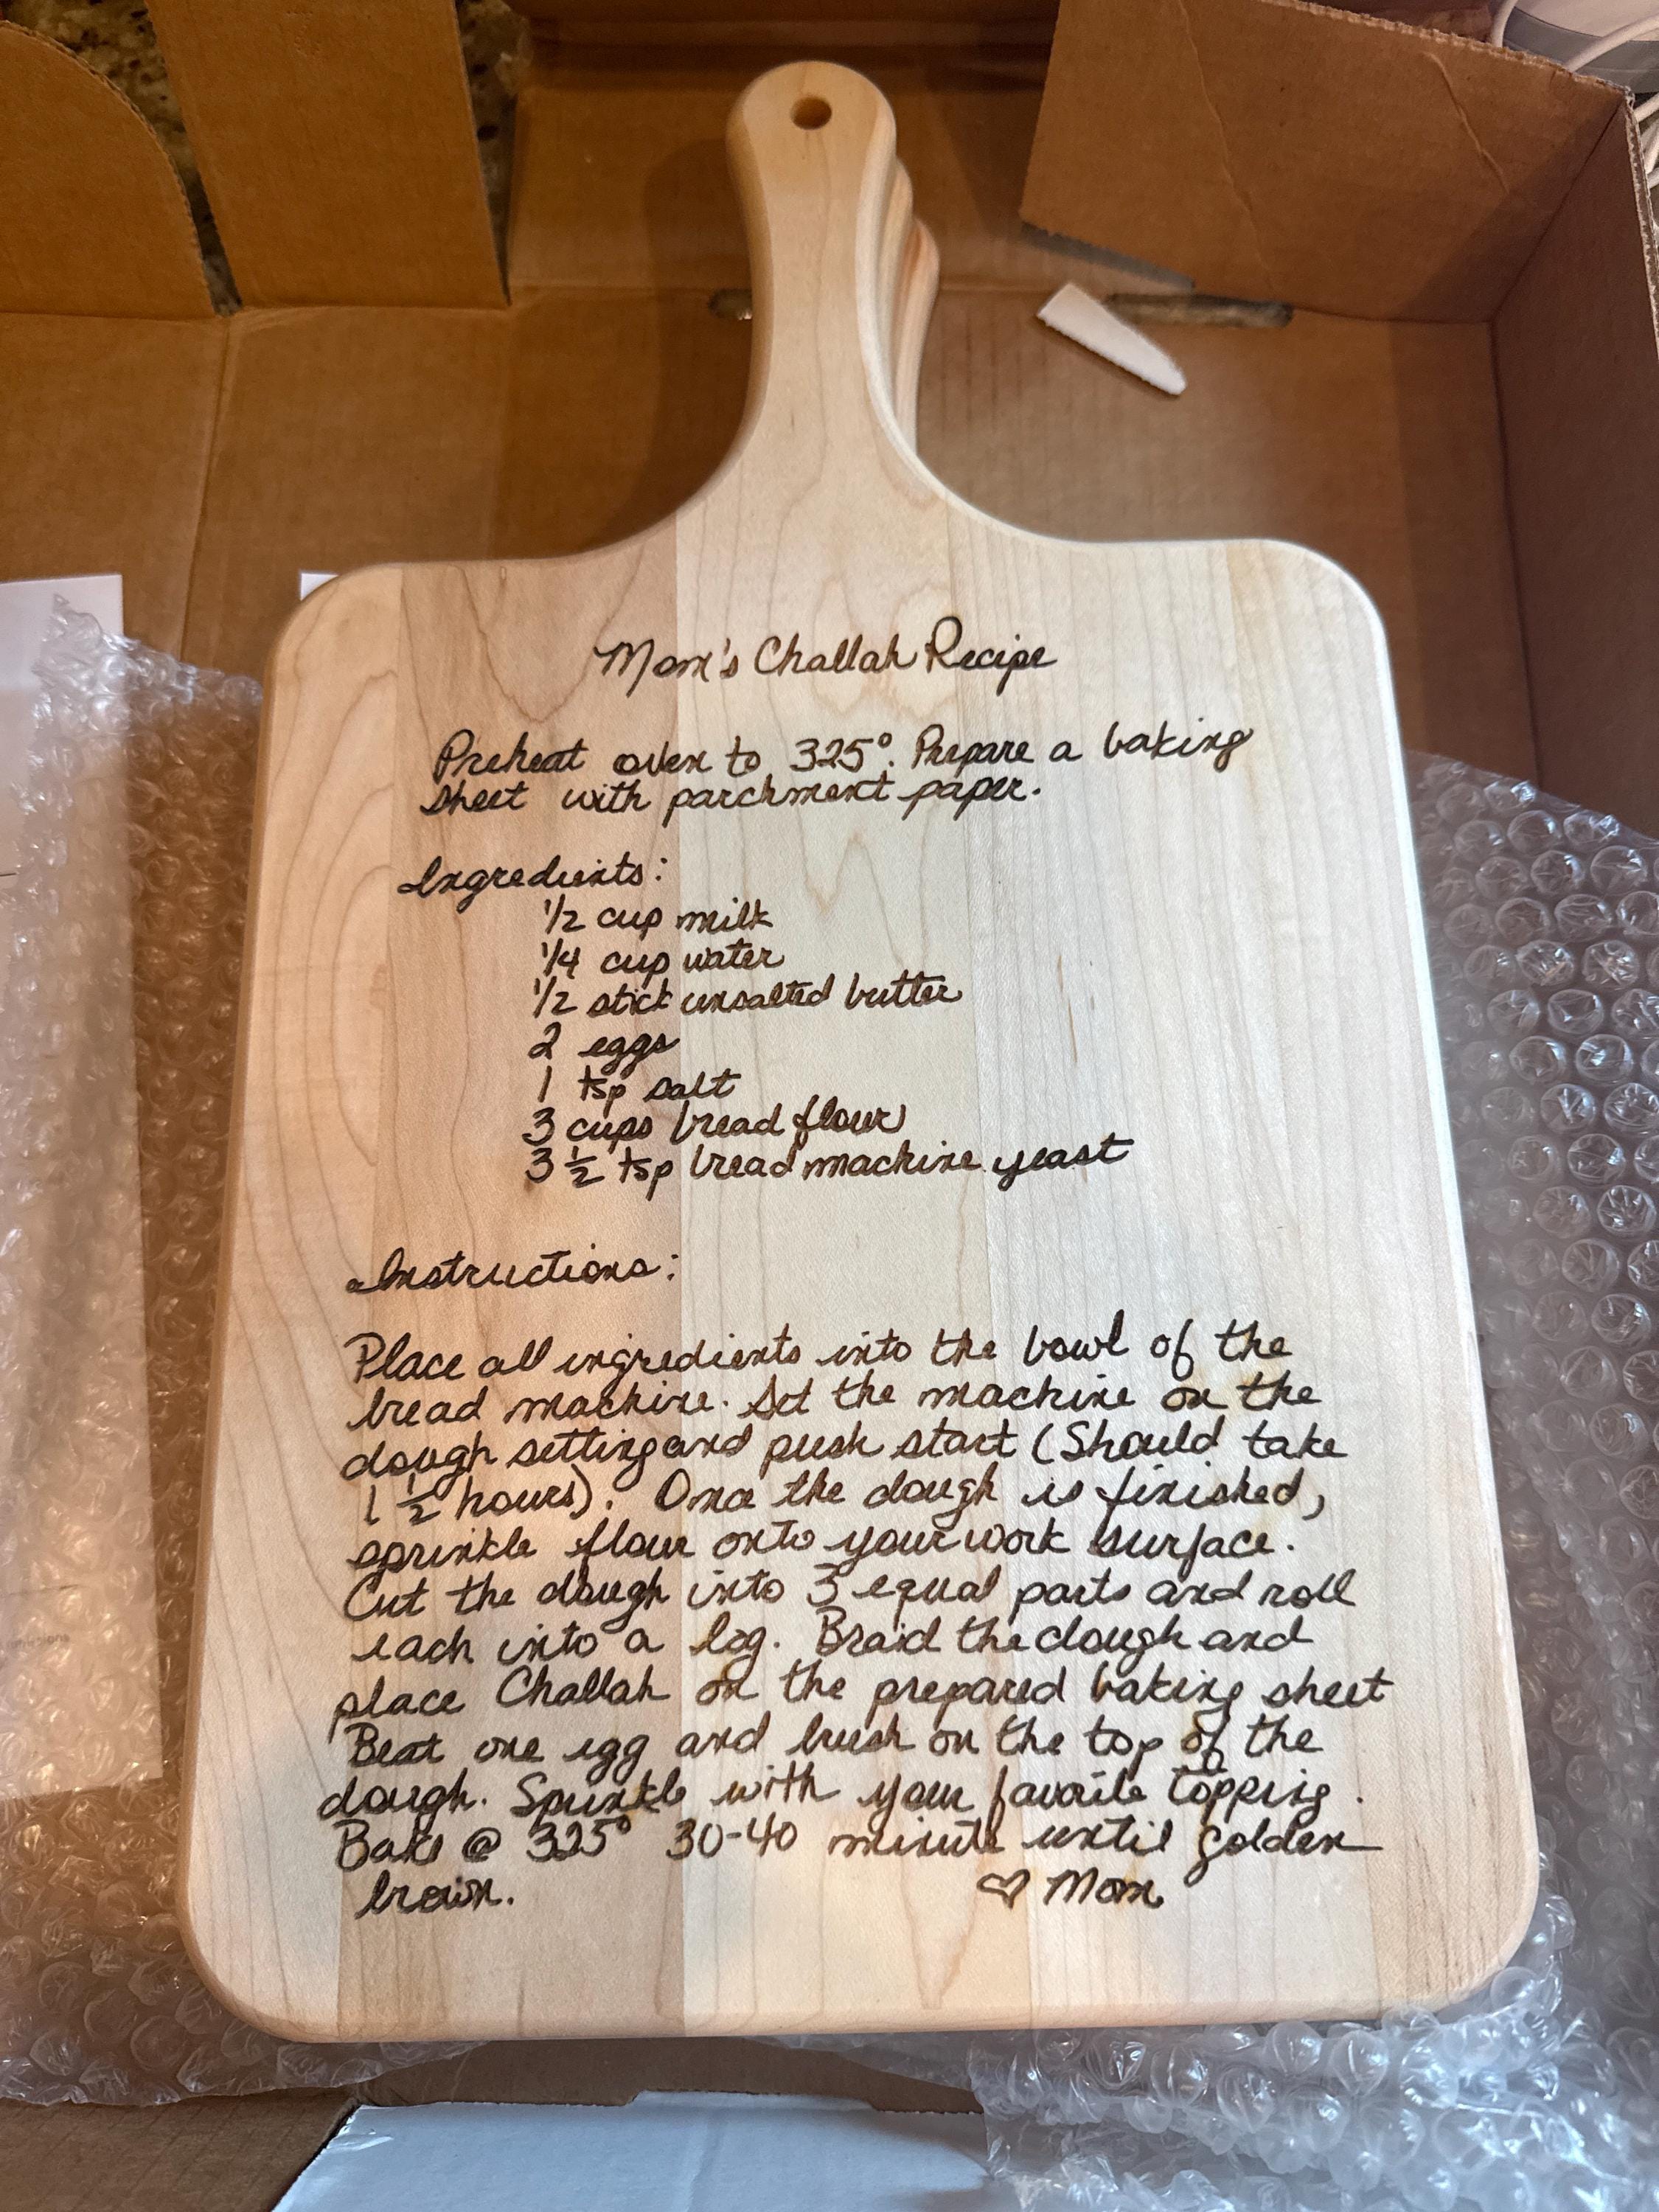 Mom's Challah Recipe
Preheat oven to 325°. Prepare a baking
sheet with parchment paper.
Ingredients:
1/2 cup milk
1/4 cup water
1/2 stick unsalted butter
2 eggs
1 tsp salt
3 cups bread flour
3 1/2 tsp bread machine yeast
Instructions:
Place all ingredients into the bowl of the
bread machine. Set the machine on the
dough setting and push start (Should take
1 1/2 hours). Once the dough is finished,
sprinkle flour onto your work surface.
Cut the dough into 3 equal parts and roll
each into a log. Braid the dough and
place Challah on the prepared baking sheet
Beat one egg and brush on the top of the
dough. Sprinkle with your favorite topping.
Bake @ 325° 30-40 minute until golden
brown.
♡ Mom